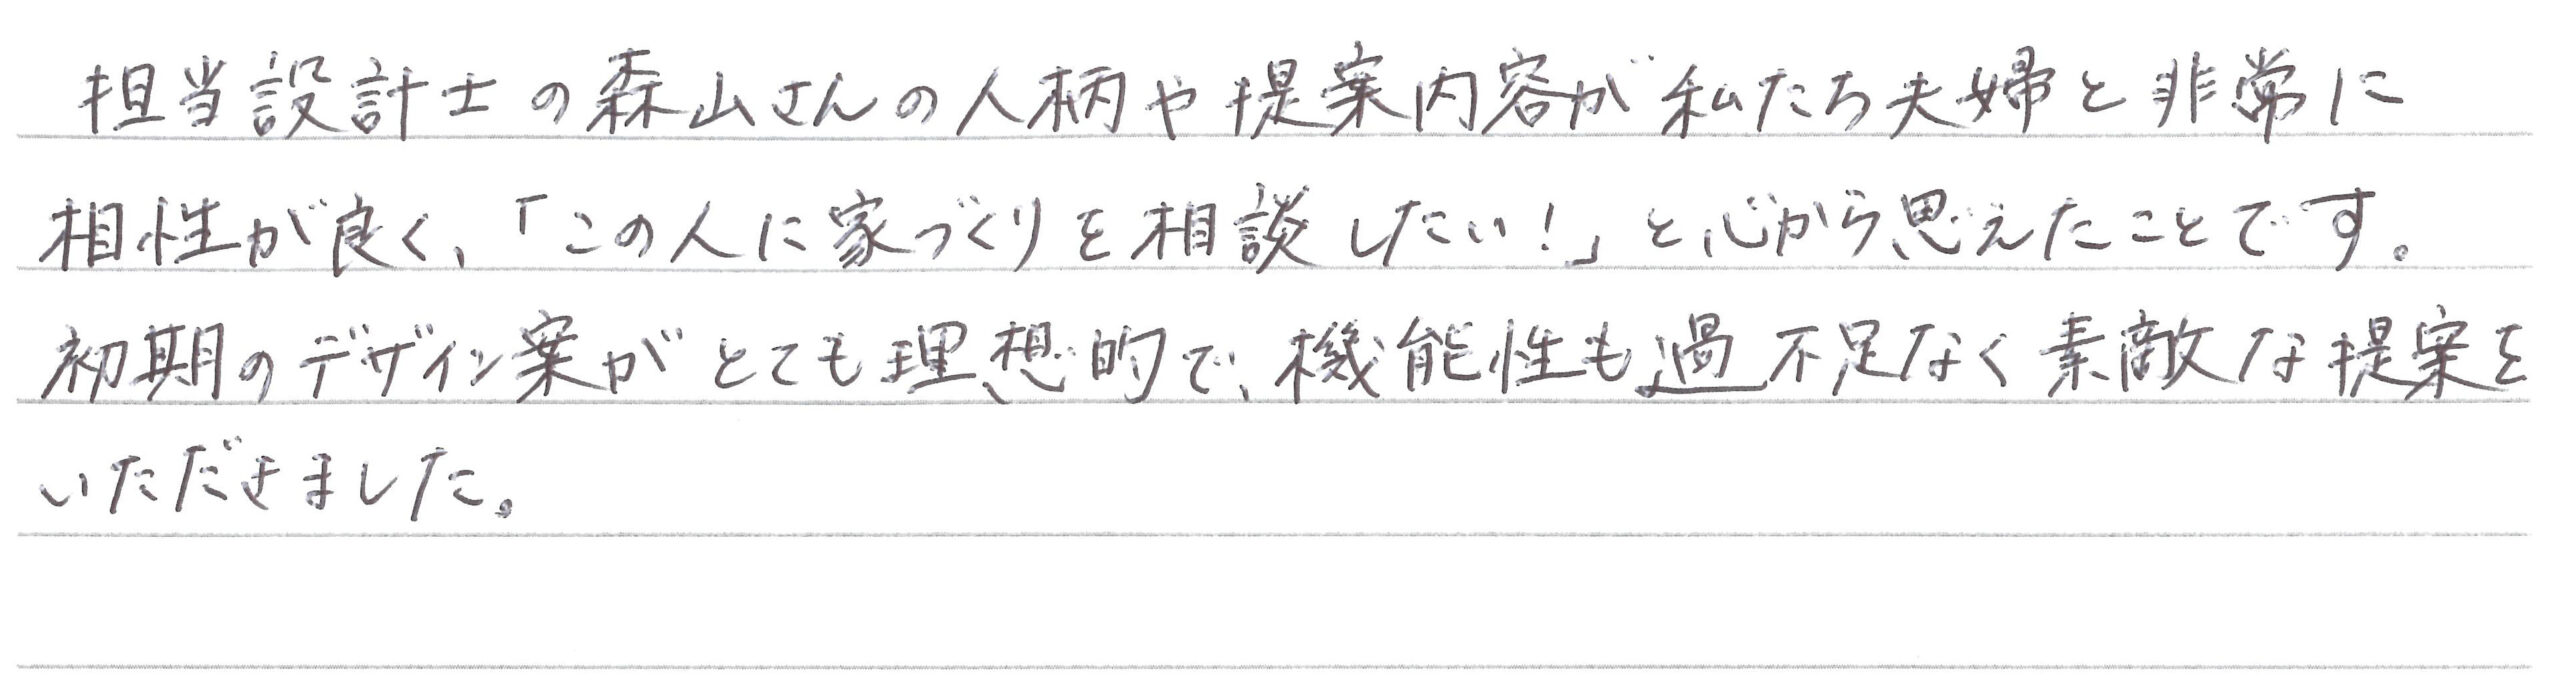 担当設計士の森山さんの人柄や提案内容が私たち夫婦と非常に
相性が良く、「この人に家づくりを相談したい!」と心から思えたことです。
初期のデザイン案がとても理想的で、機能性も過不足なく素敵な提案を
いただきました。